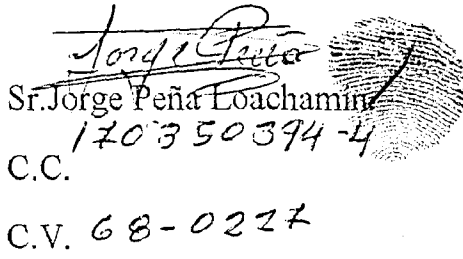 Jorge Peña
Sr.Jorge Peña Loachamin
170350394-4
C.C.
C.V. 68-0227